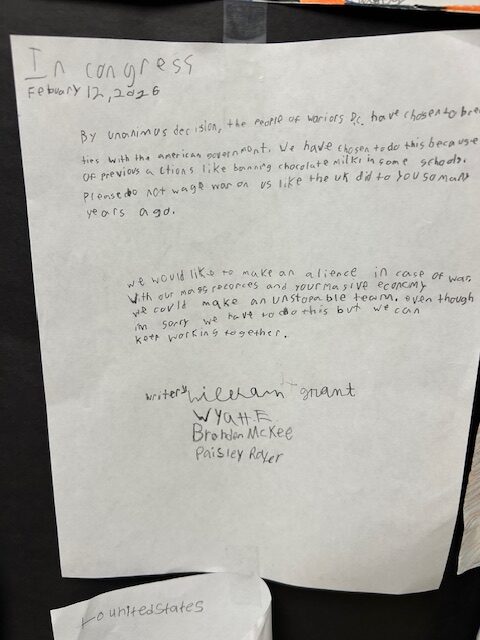 In congress
Febuary 12, 2026
By unanimus decision, the people of wariors D.C. have chosen to bree
ties with the american government. We have chosen to do this because
of previous actions like banning chocolate milk in some schools.
Please do not wage war on us like the uk did to you so many
years ago.
we would like to make an alience in case of war.
With our mass recorces and your masive economy
we could make an unstopable team. even though
im sorry we have to do this but we can
keep working together.
writers grant
Wyatt.E.
Branden McKee
Paisley
to united States